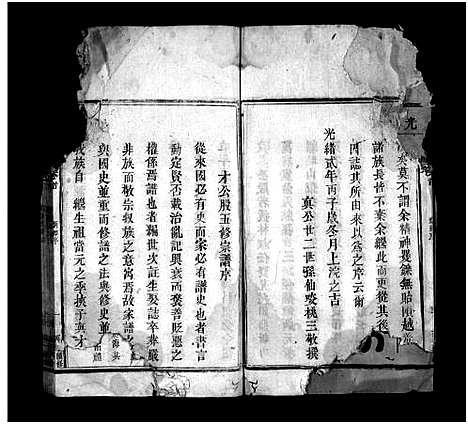 光
矣莫不謂余精神矍鑠無貽隕越
諸族長皆不棄余繼此而更從其後
因誌其所由來以為之序云爾
光緒貳年丙子歲冬月上浣之吉
真公廿二世孫仙咬桃三敬撰
才公股五修宗譜序
從來國必有史而家必有譜史也者書言
動定賢否載治亂記興衰而褒善貶惡之
權係焉譜也者溯世次註生娶誌卒葬嚴
非族而敬宗收族之意寓焉故家譜之
與國史並重而修譜之法與修史並
氏族自 繼生祖當元之季挾子真才